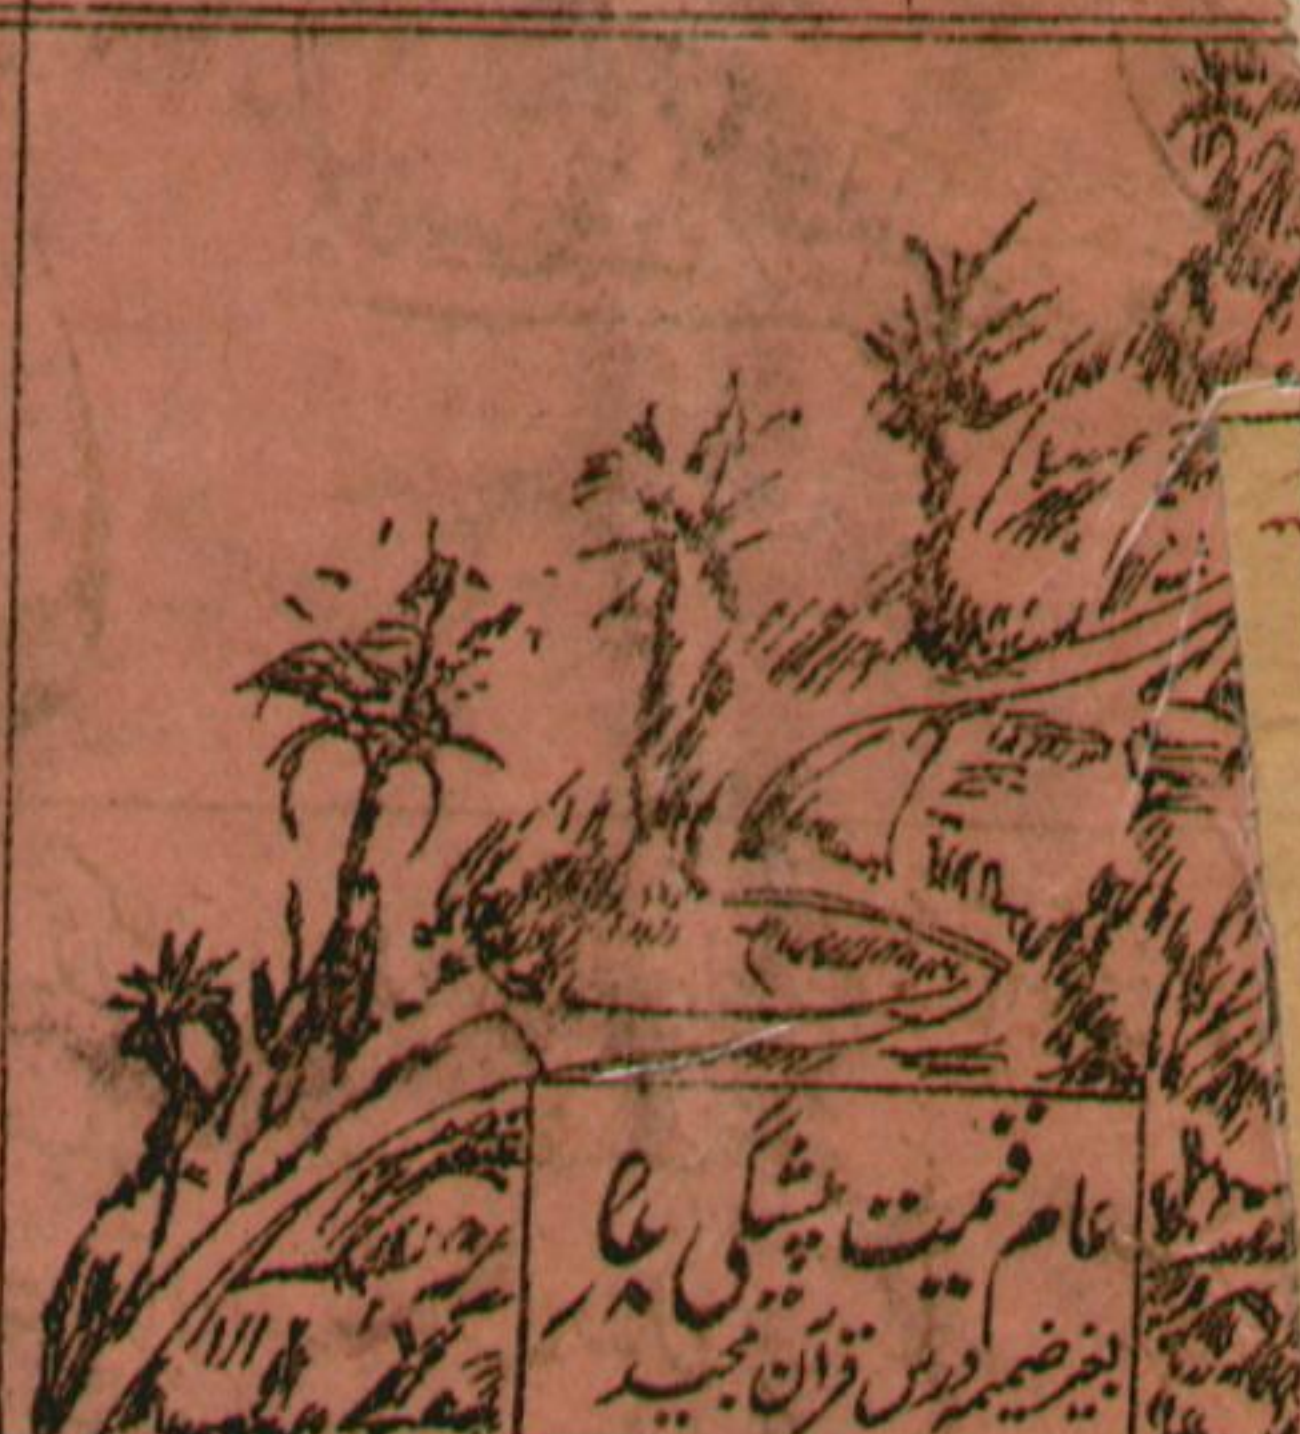 عام قیمت پیشگی
بغیر ضمیمہ درس قرآن مجید